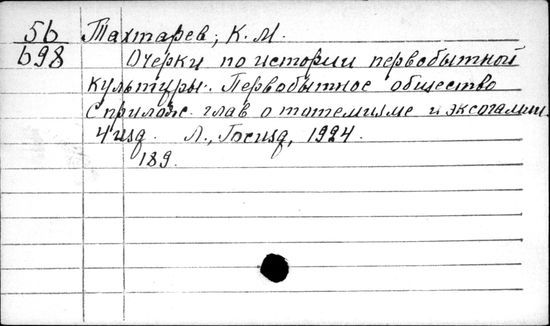 5б Тахтарев, К. М.
б98 Очерки по истории первобытной
культуры. Первобытное общество
с прилож. глав о тотемизме и экзогамии.
4 изд. Л., Госизд, 1924.
189.